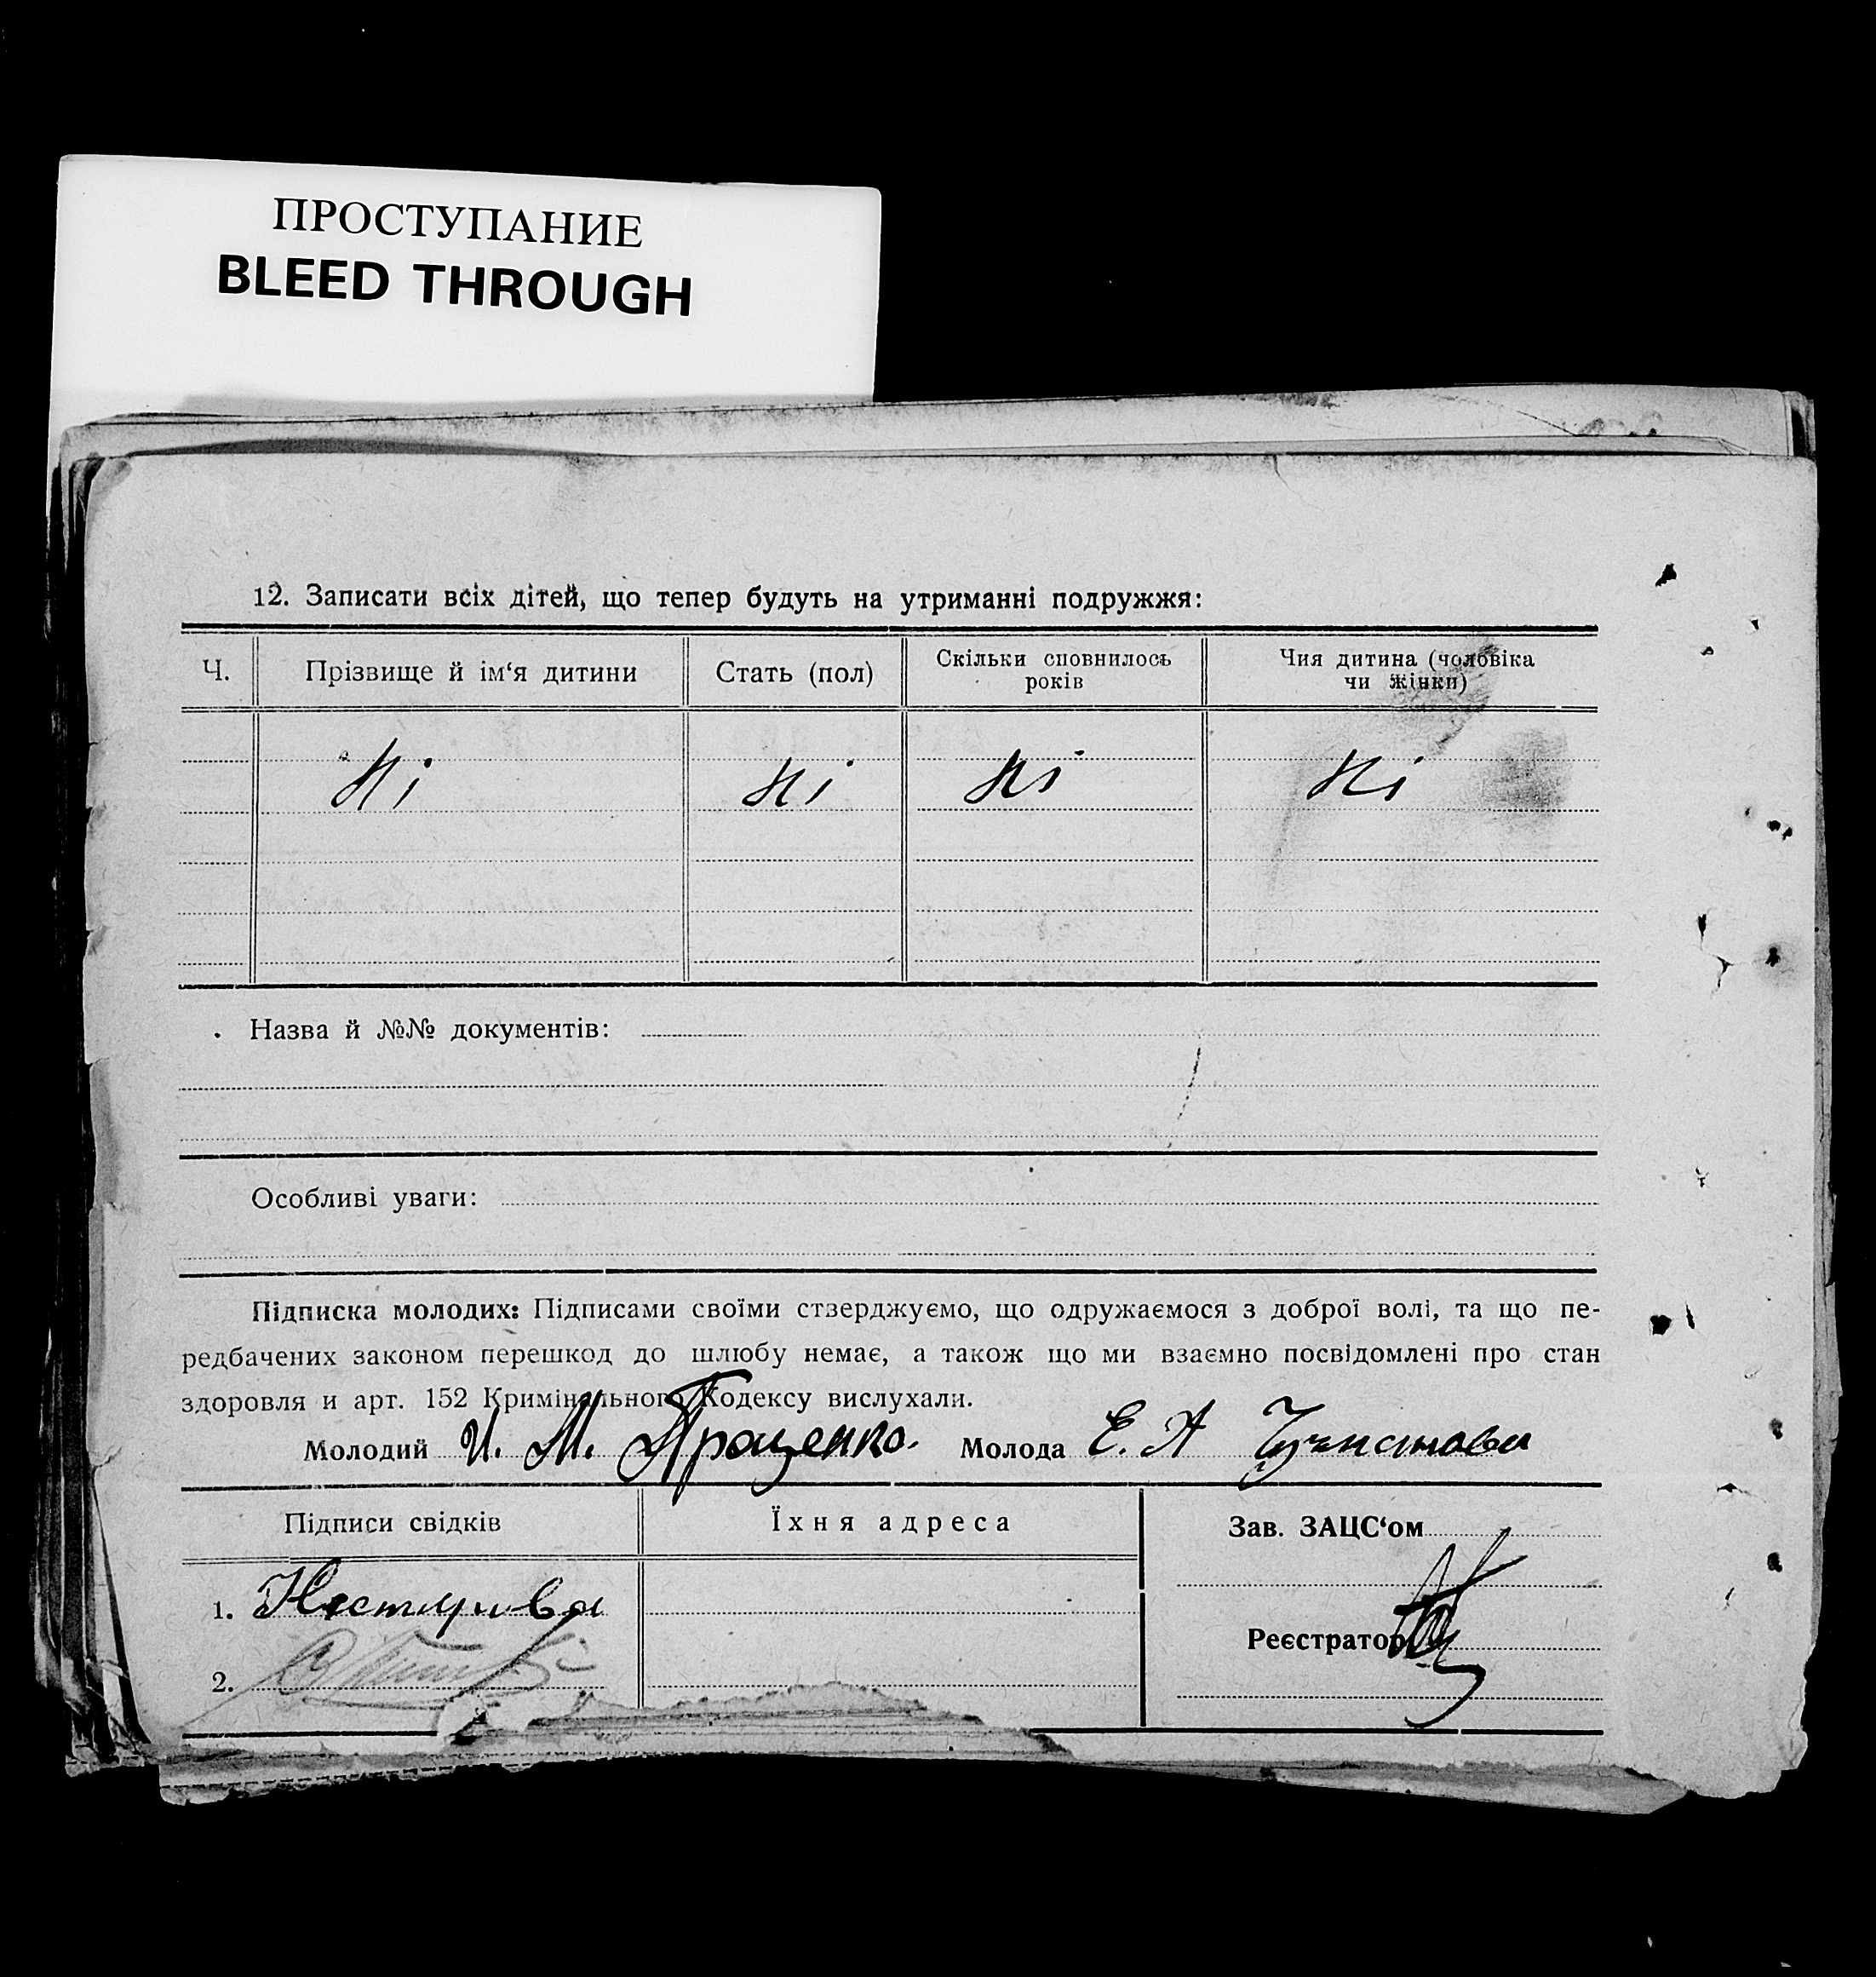 ПРОСТУПАНИЕ
BLEED THROUGH
12. Записати всіх дітей, що тепер будуть на утриманні подружжя:
Ч. Прізвище й ім‘я дитини Стать (пол) Скільки сповнилось років Чия дитина (чоловіка чи жінки)
Ні Ні Ні Ні
Назва й №№ документів:
Особливі уваги:
Підписка молодих: Підписами своїми стверджуємо, що одружаємося з доброї волі, та що пе-
редбачених законом перешкод до шлюбу немає, а також що ми взаємно посвідомлені про стан
здоровля и арт. 152 Кримінального Кодексу вислухали.
Молодий И. М. Проценко. Молода Е. А
Підписи свідків Їхня адреса Зав. ЗАЦС‘ом
1.
Реєстратор
2.